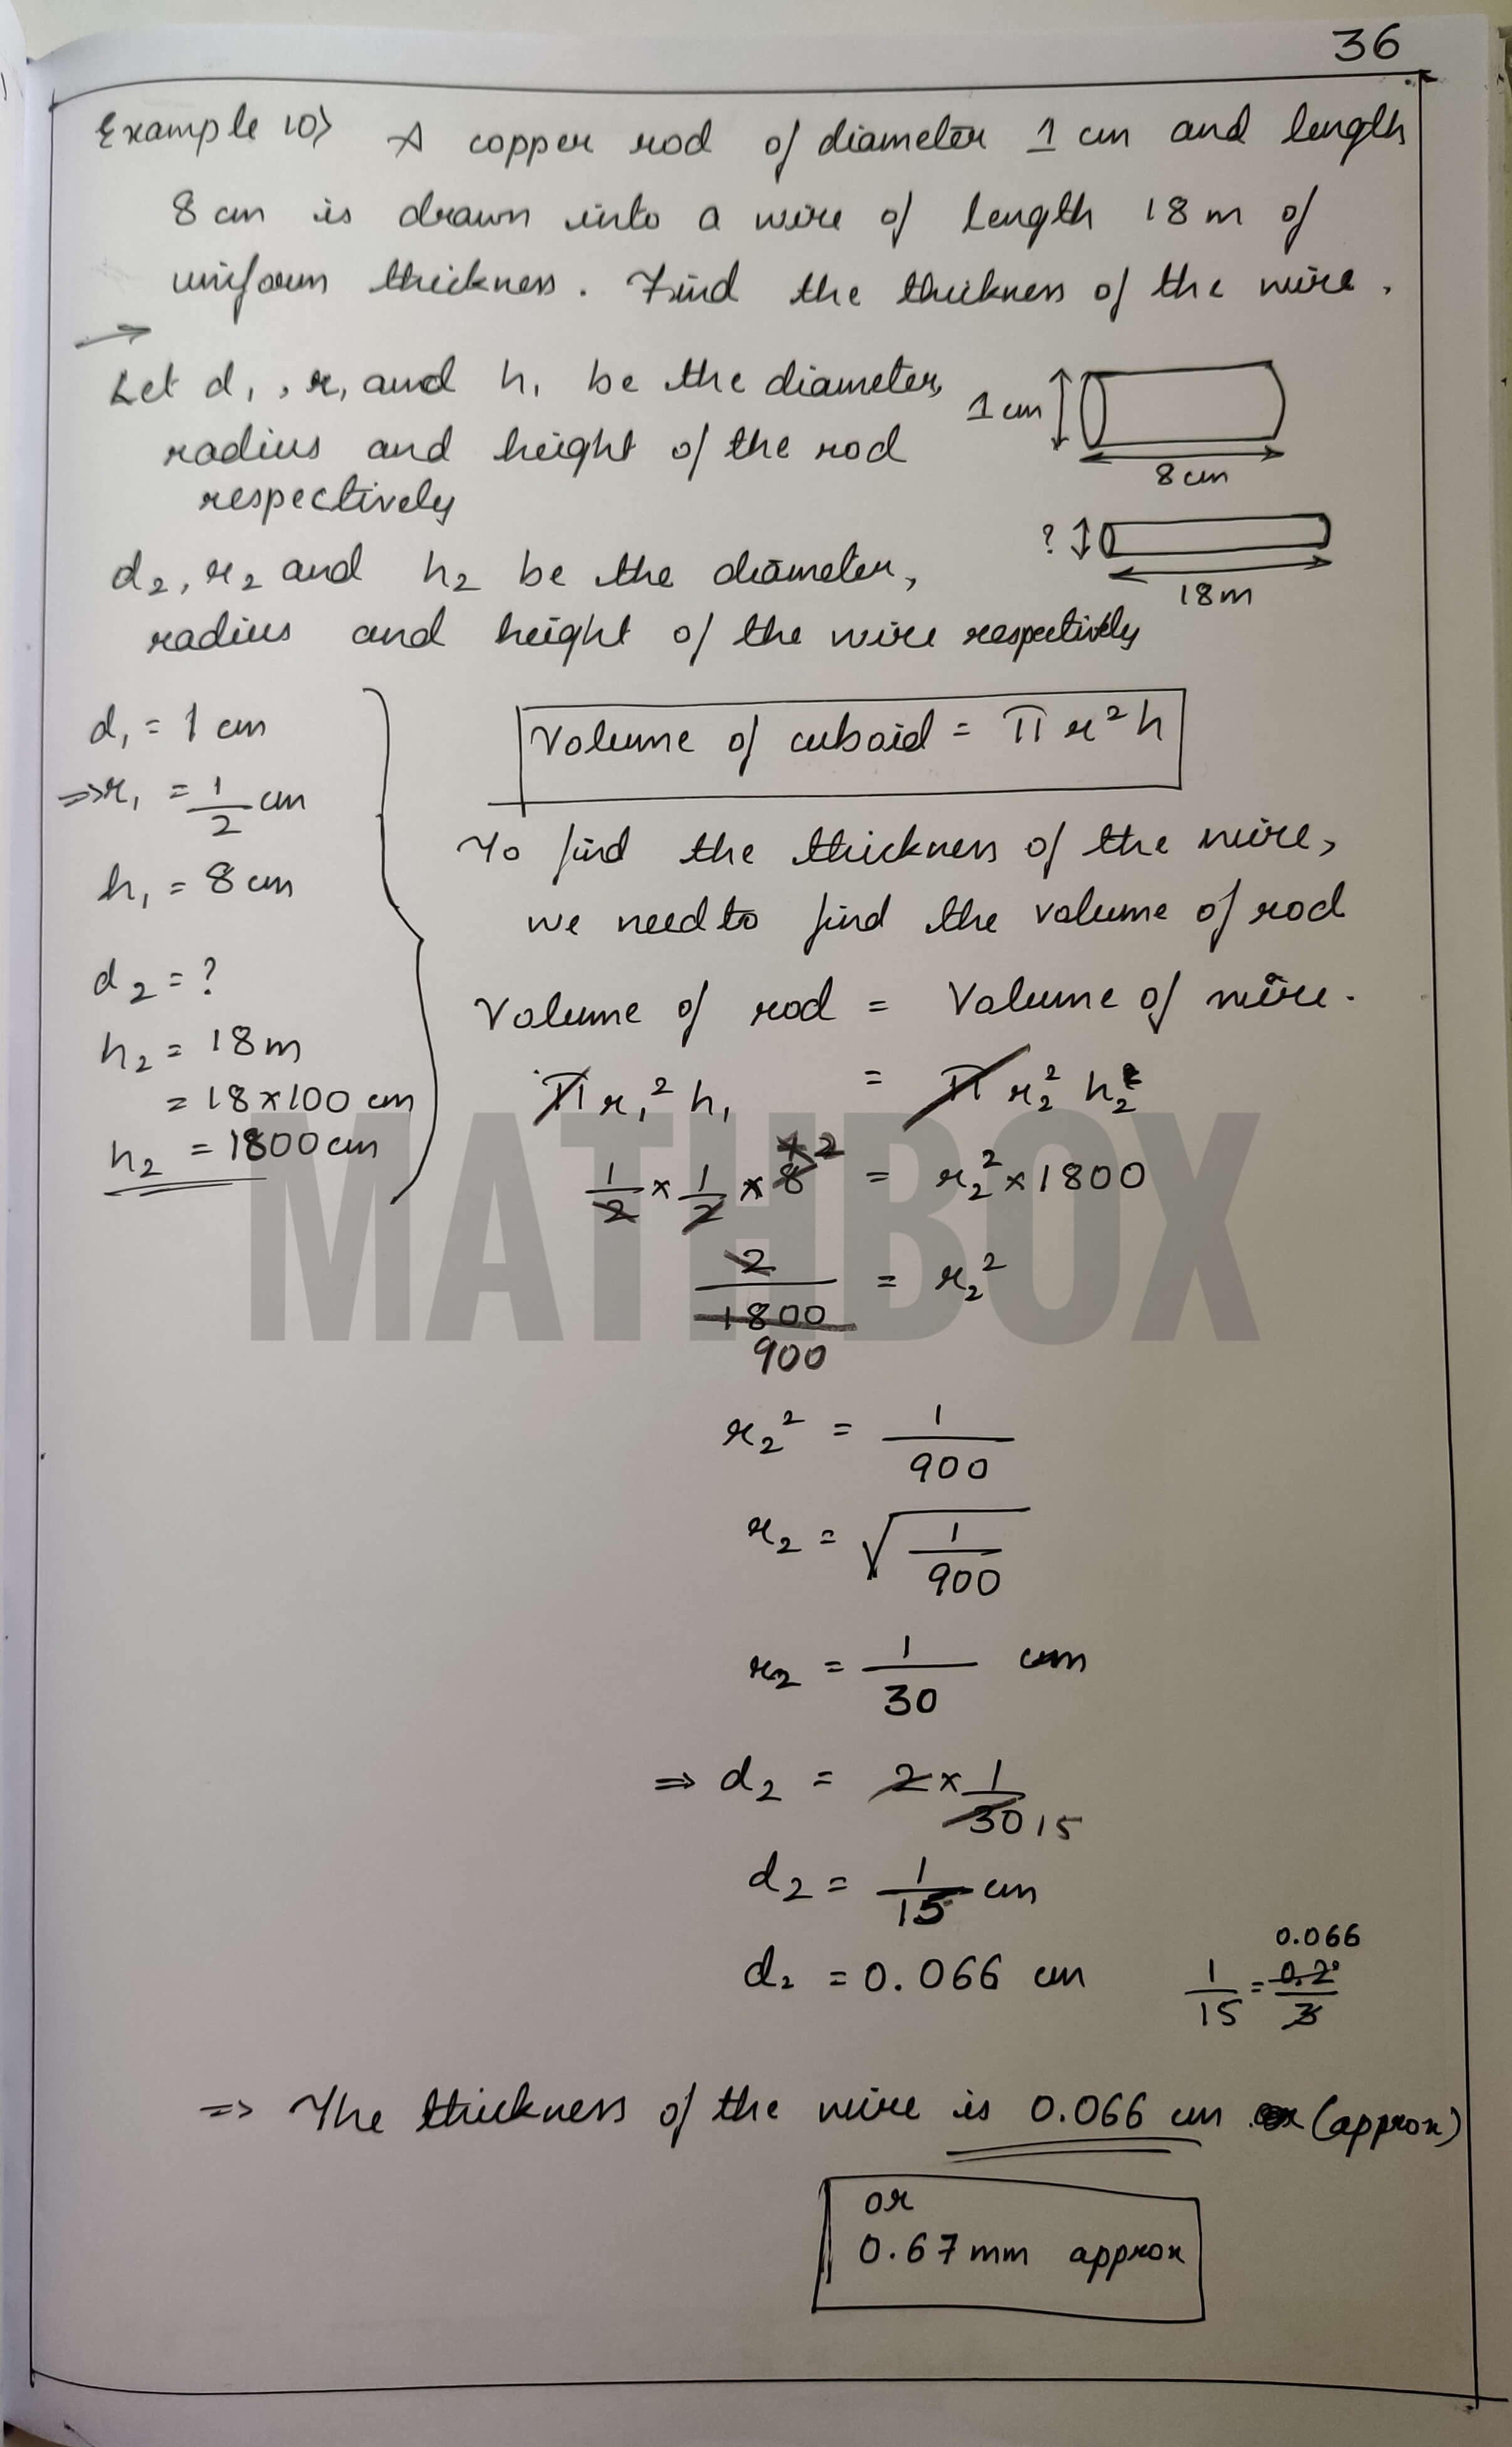 36
Example 10> A copper rod of diameter 1 cm and length
8 cm is drawn into a wire of length 18 m of
uniform thickness. Find the thickness of the wire.
→
Let d₁, r₁ and h₁ be the diameter,
radius and height of the rod
respectively
1 cm
8 cm
d₂, r₂ and h₂ be the diameter,
radius and height of the wire respectively
?
18 m
d₁ = 1 cm
⇒ r₁ = 1/2 cm
h₁ = 8 cm
d₂ = ?
h₂ = 18 m
= 18 × 100 cm
h₂ = 1800 cm
Volume of cuboid = π r² h
To find the thickness of the wire,
we need to find the volume of rod
Volume of rod = Volume of wire.
π r₁² h₁ = π r₂² h₂
1/2 × 1/2 × 8 2 = r₂² × 1800
2/1800 = r₂²
900
r₂² = 1/900
r₂ = √(1/900)
r₂ = 1/30 cm
⇒ d₂ = 2 × 1/30 15
d₂ = 1/15 cm
d₂ = 0.066 cm
0.066
1/15 = 0.2/3
⇒ The thickness of the wire is 0.066 cm (approx)
or
0.67 mm approx
MATHBOX